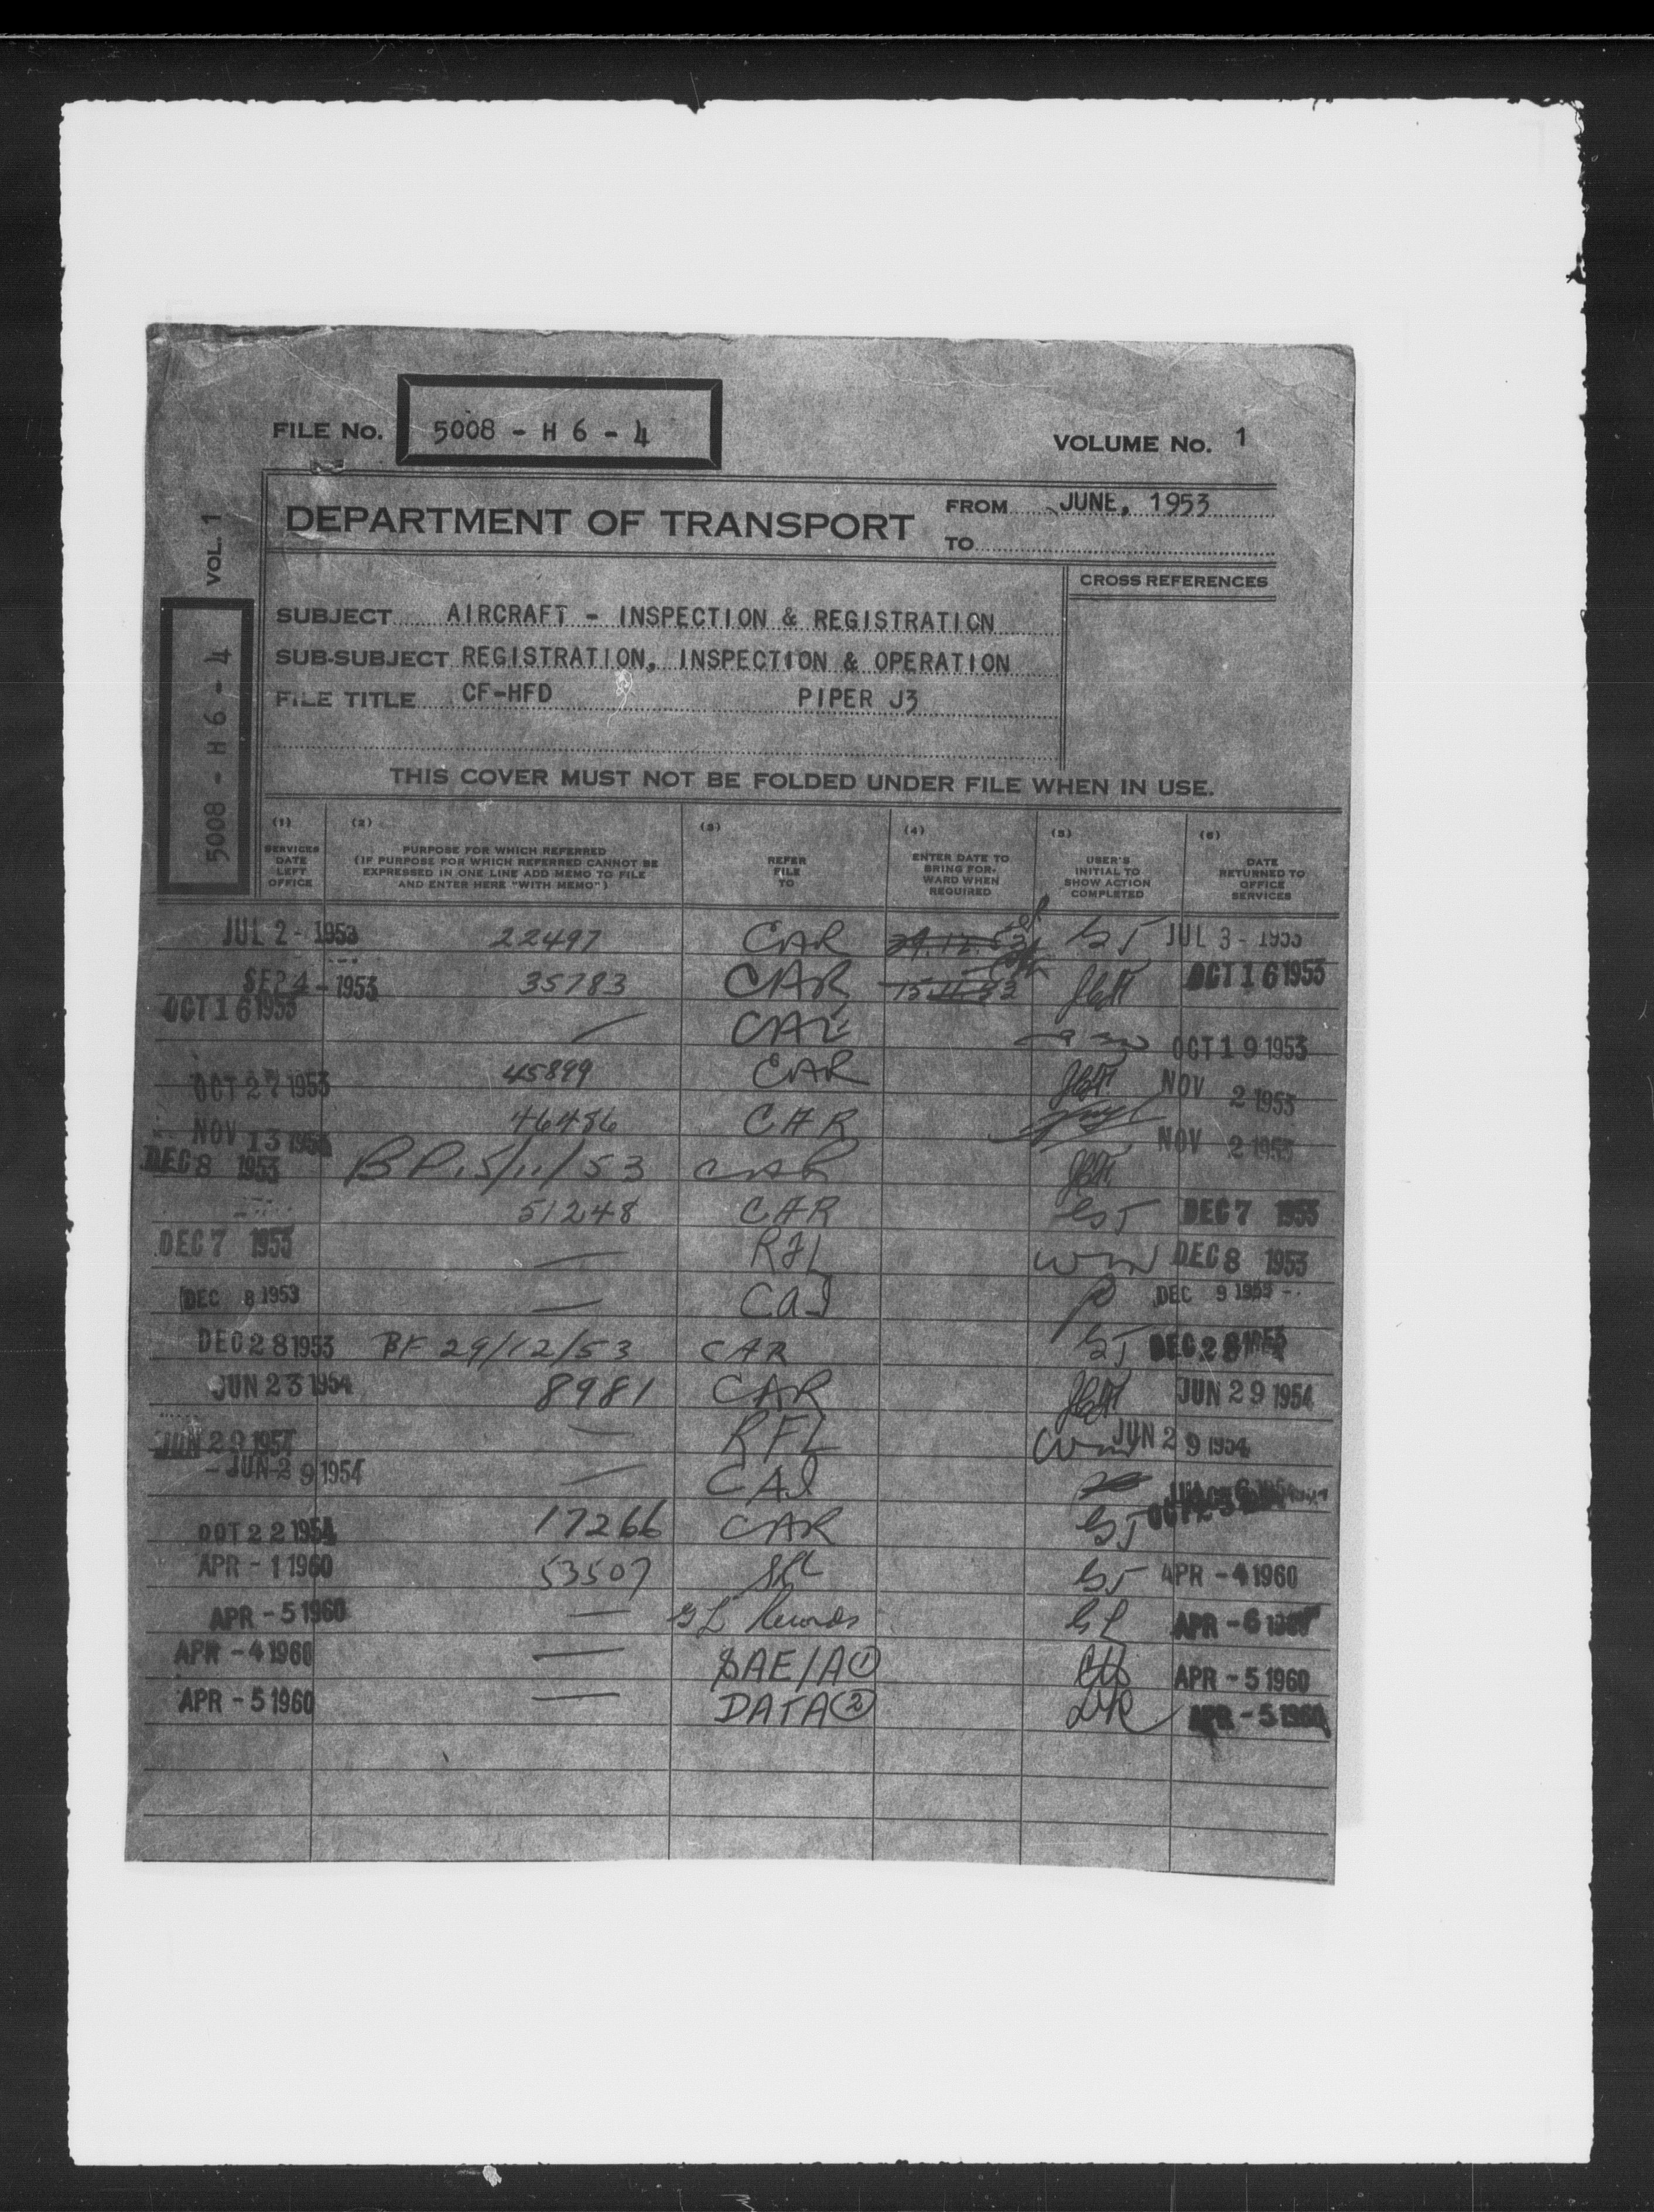 FILE No. 5008 - H 6 - 4
VOLUME No. 1
VOL. 1
5008 - H 6 - 4
DEPARTMENT OF TRANSPORT
FROM JUNE, 1953
TO
CROSS REFERENCES
SUBJECT AIRCRAFT - INSPECTION & REGISTRATION
SUB-SUBJECT REGISTRATION, INSPECTION & OPERATION
FILE TITLE CF-HFD PIPER J3
THIS COVER MUST NOT BE FOLDED UNDER FILE WHEN IN USE.
(1) (2) (3) (4) (5) (6)
SERVICES DATE LEFT OFFICE
PURPOSE FOR WHICH REFERRED
(IF PURPOSE FOR WHICH REFERRED CANNOT BE
EXPRESSED IN ONE LINE ADD MEMO TO FILE
AND ENTER HERE "WITH MEMO")
REFER FILE TO
ENTER DATE TO BRING FOR- WARD WHEN REQUIRED
USER'S INITIAL TO SHOW ACTION COMPLETED
DATE RETURNED TO OFFICE SERVICES
JUL 2 - 1953 22497 CAR 29.12.53 GJ JUL 3 - 1953
SEP 4 - 1953 35783 CAR 15.11.53 OCT 16 1953
OCT 16 1953 — CAE OCT 19 1953
OCT 27 1953 45899 CAR NOV 2 1953
NOV 13 46486 CAR NOV 2 1953
DEC 8 1953 BF 15/11/53 CAR
51248 CAR GJ DEC 7 1953
DEC 7 1953 — RFL WM DEC 8 1953
DEC 8 1953 — CAI DEC 9 1953
DEC 28 1953 BF 29/12/53 CAR GJ DEC 28 1953
JUN 23 1954 8981 CAR JUN 29 1954
JUN 29 1954 — RFL WM JUN 29 1954
JUN 29 1954 — CAI
OCT 22 1954 17266 CAR GJ
APR - 1 1960 53507 GJ APR - 4 1960
APR - 5 1960 — GL Records GL APR - 6 1960
APR - 4 1960 — SAE/A ① APR - 5 1960
APR - 5 1960 — DATA ② APR - 5 1960